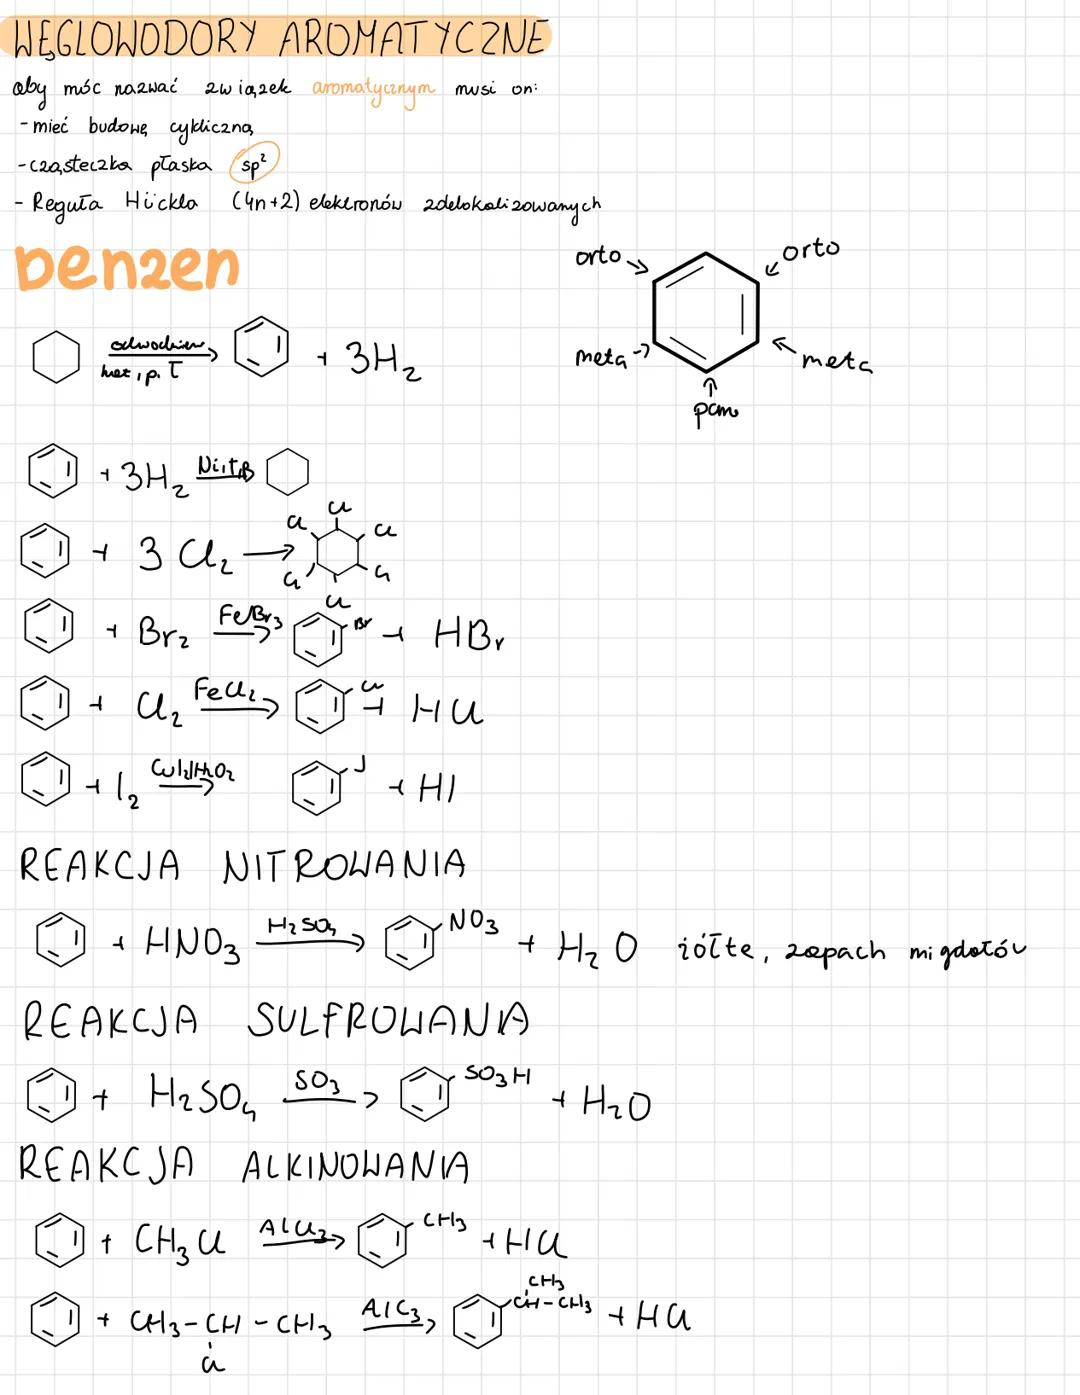 WĘGLOWODORY AROMATYCZNE
aby móc nazwać związek aromatycznym musi on:
- mieć budowę cykliczną
- cząsteczka płaska sp²
- Reguła Hückla (4n+2) elektronów zdelokalizowanych
benzen
orto orto
meta meta
para
kat, p. T
+ 3H₂
+ 3H₂ Ni,t,p
+ 3 Cl₂ → Cl Cl Cl Cl Cl Cl
+ Br₂ FeBr₃ → Br + HBr
+ Cl₂ FeCl₂ → Cl + HCl
+ I₂ → J + HI
REAKCJA NITROWANIA
+ HNO₃ H₂SO₄ → NO₃ + H₂O żółte, zapach migdałów
REAKCJA SULFROWANIA
+ H₂SO₄ SO₃ → SO₃H + H₂O
REAKCJA ALKINOWANIA
+ CH₃Cl AlCl₃ → CH₃ + HCl
CH₃
+ CH₃-CH-CH₃ AlC₃ → CH-CH₃ + HCl
Cl